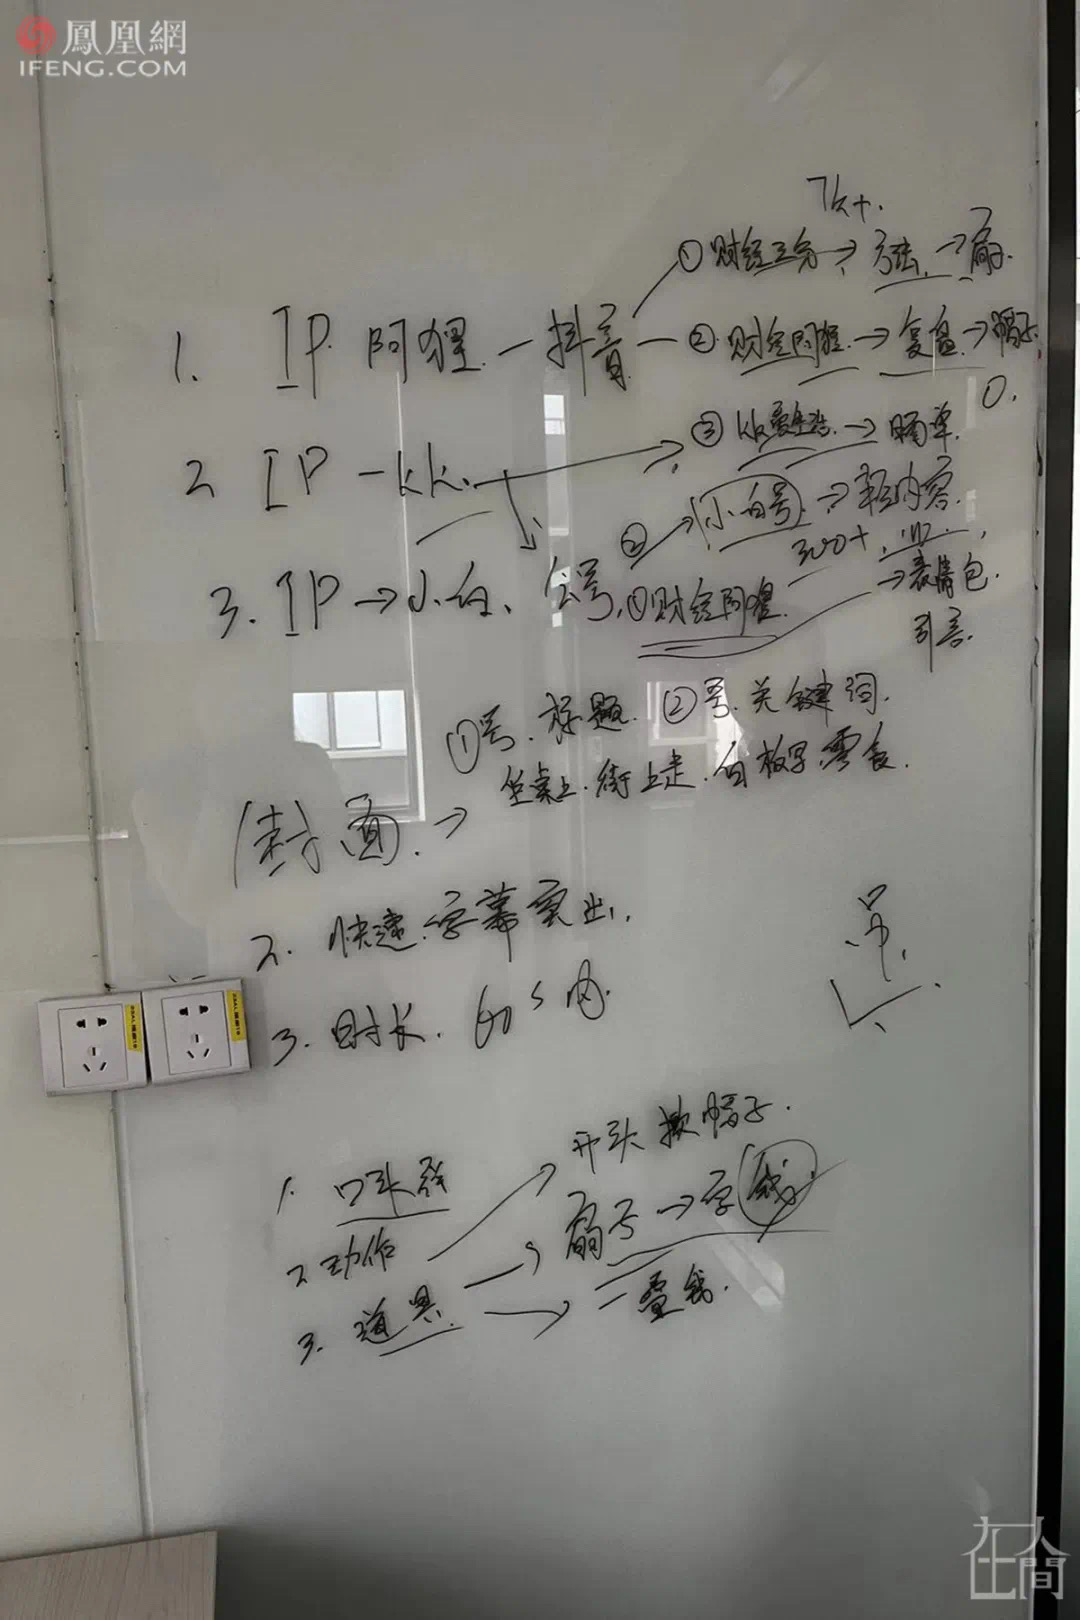 鳳凰網
IFENG.COM
7k+.
1. IP 阿狸 — 抖音 — ① 财经三分 → 方法 → 扇.
② 财经阿狸 → 复盘 → 帽子
2 IP — kk. → ③ kk爱生活 → 晒单.
② → 小白号 → 轻内容.
300+
3. IP → 小白、公号, ① 财经阿狸. → 表情包
引言.
①号.标题. ②号.关键词.
封面. → 坐桌上.街上走.白板写.零食.
2. 快速.字幕突出.
3. 时长. 60s内.
1. 口头禅
2 动作 → 开头掀帽子.
3. 道具. → 扇子 → 字 钱.
→ 一叠钱.
在人間